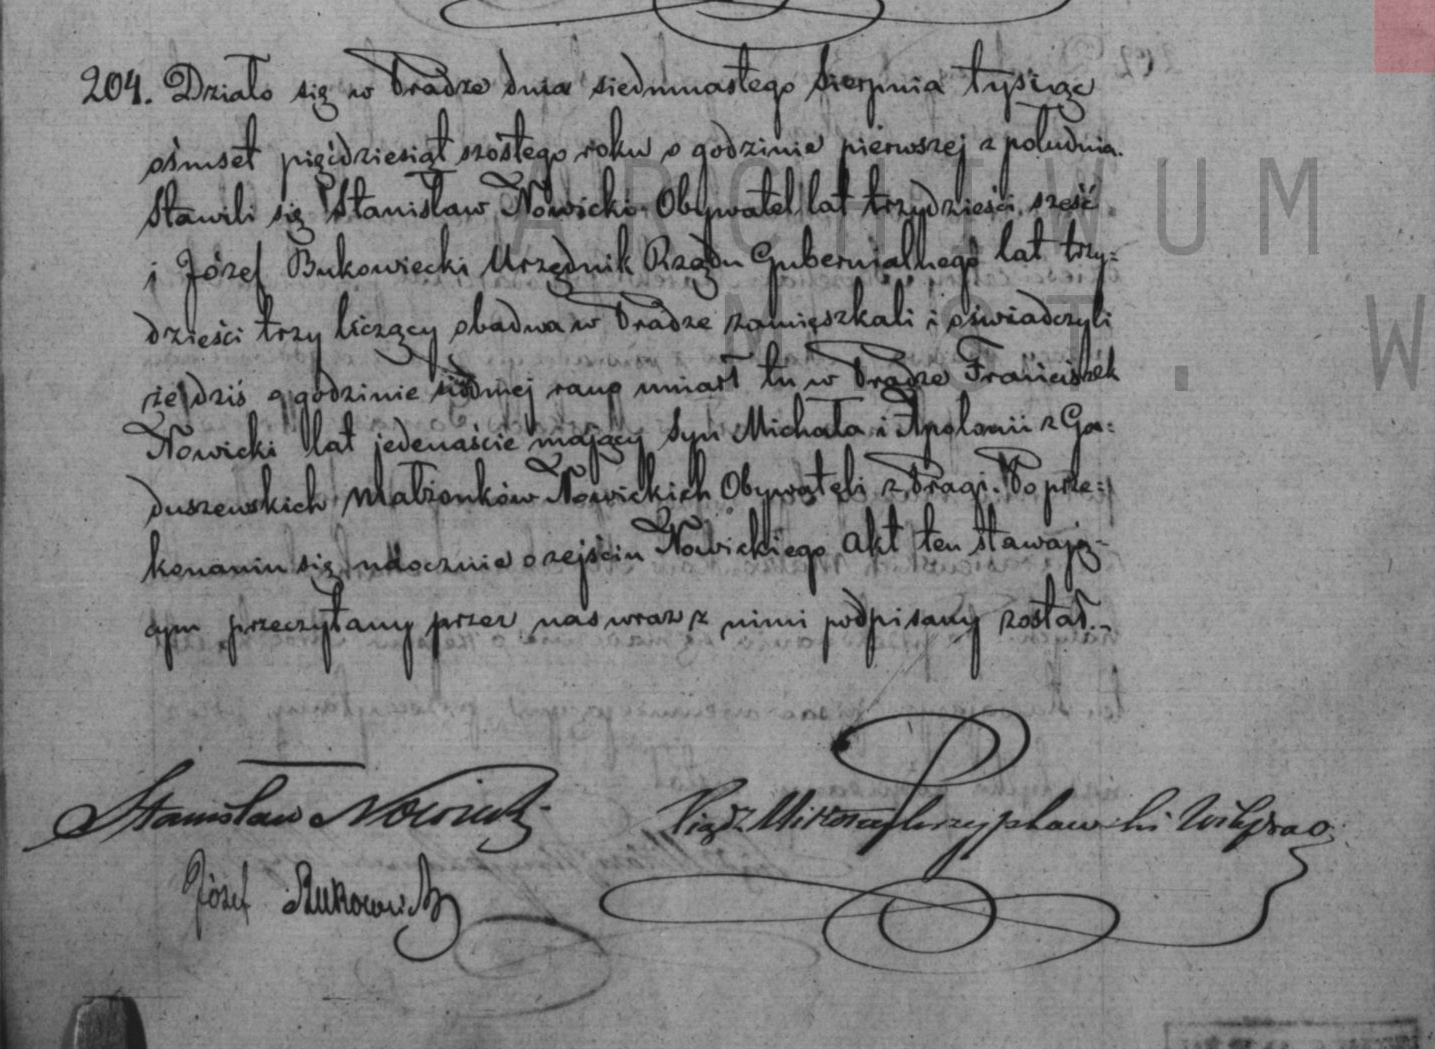 204. Działo się w Pradze dnia siedmnastego Sierpnia tysiąc
ośmset pięćdziesiąt szóstego roku o godzinie pierwszej z południa.
Stawili się Stanisław Nowicki Obywatel lat trzydzieści sześć
i Józef Bukowiecki Urzędnik Rządu Gubernialnego lat trzy=
dzieści trzy liczący obadwa w Pradze zamięszkali i oświadczyli
że dziś o godzinie siódmej rano umarł tu w Pradze Franciszek
Nowicki lat jedenaście mający Syn Michała i Apolonii z Ga=
duszewskich Małżonków Nowickich Obywateli z Pragi. Po prze=
konaniu się naocznie o zejściu Nowickiego Akt ten stawają=
cym przeczytany przez nas wraz z nimi podpisany został.
ARCHIWUM
M. ST. W
Stanisław Nowicki
Xiądz Przypkowski Wik Prag
Józef Bukowiecki